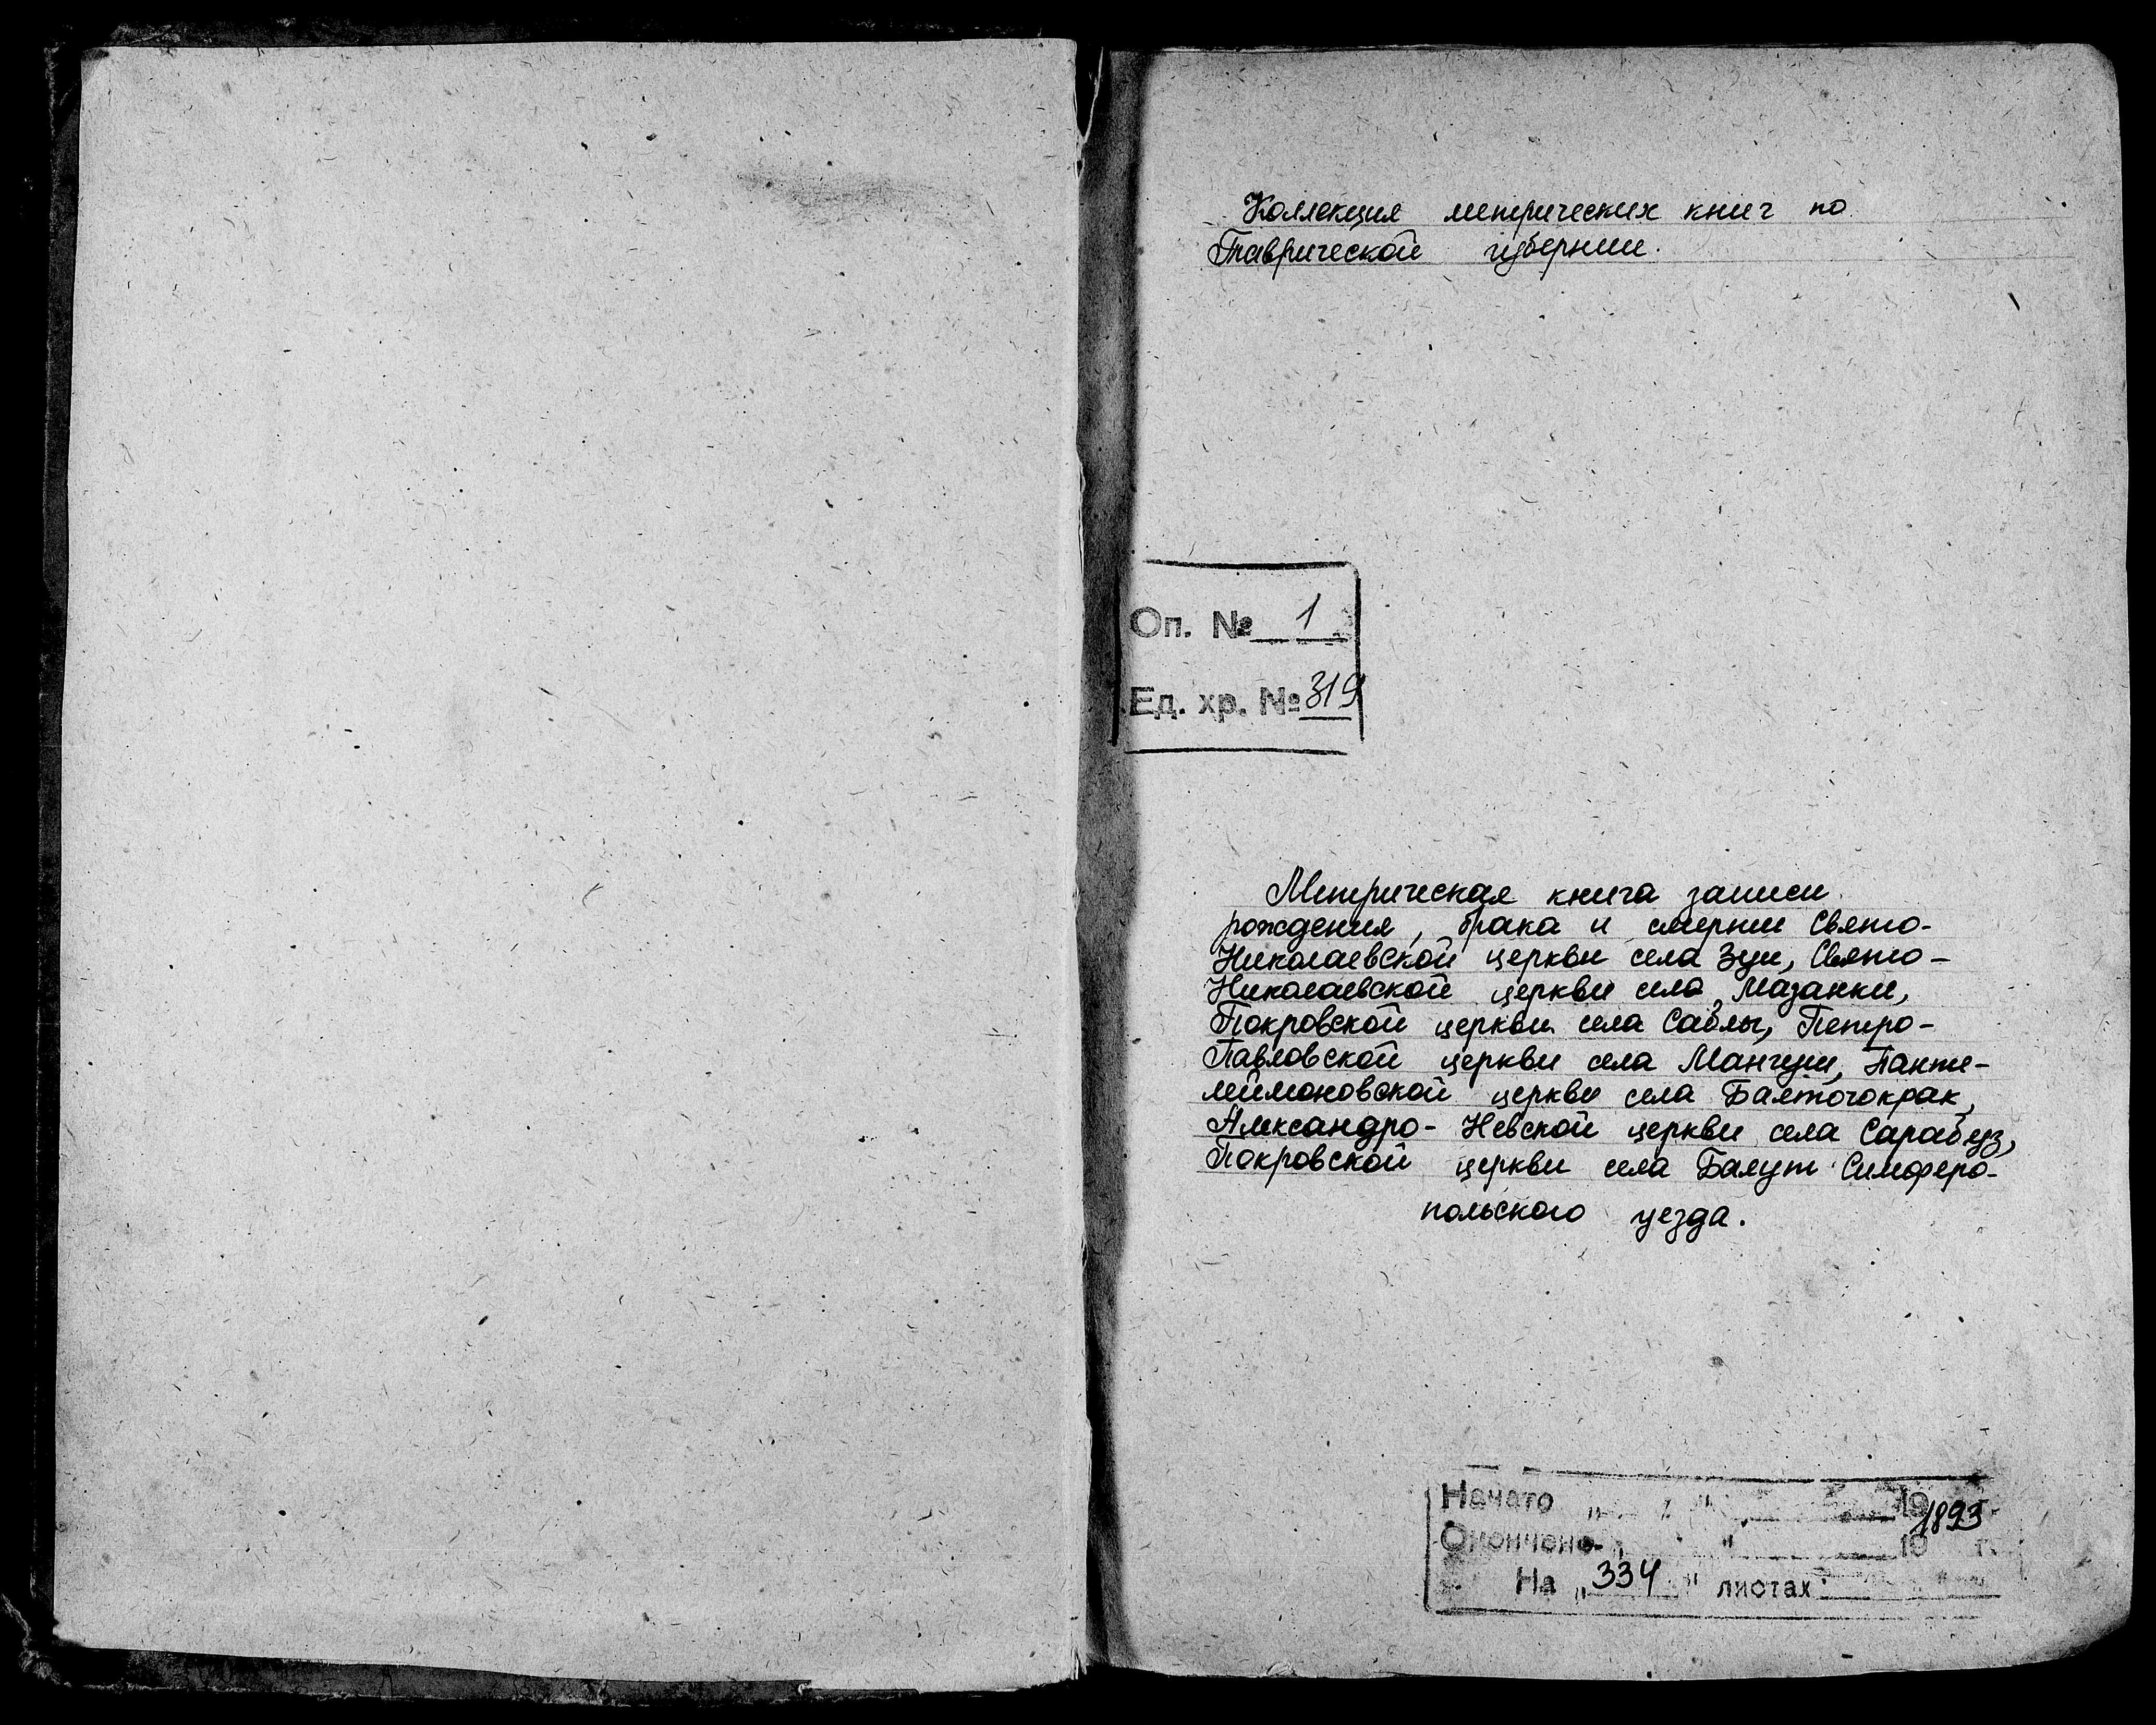 Коллекция метрических книг по
Таврической губернии.
Оп. № 1
Ед. хр. № 319
Метрическая книга записи
рождения, брака и смерти Свято-
Николаевской церкви села Зуи, Свято-
Николаевской церкви села Мазанки,
Покровской церкви села Саблы, Петро-
Павловской церкви села Мангуш, Панте-
леймоновской церкви села
Александро-Невской церкви села Сарабуз,
Покровской церкви села Симферо-
польского уезда.
Начато „ " 19 1893
Окончено „ " 19 г.
На „ 334 " листах